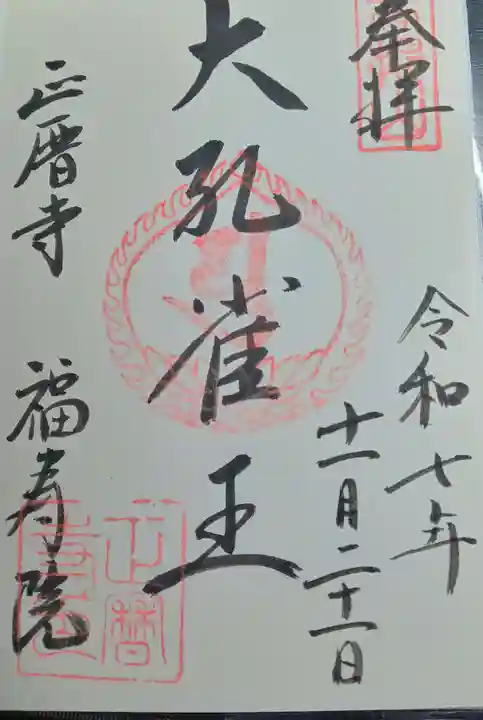 奉拝
令和七年
十一月二十一日
大孔雀王
正暦寺 福寿院